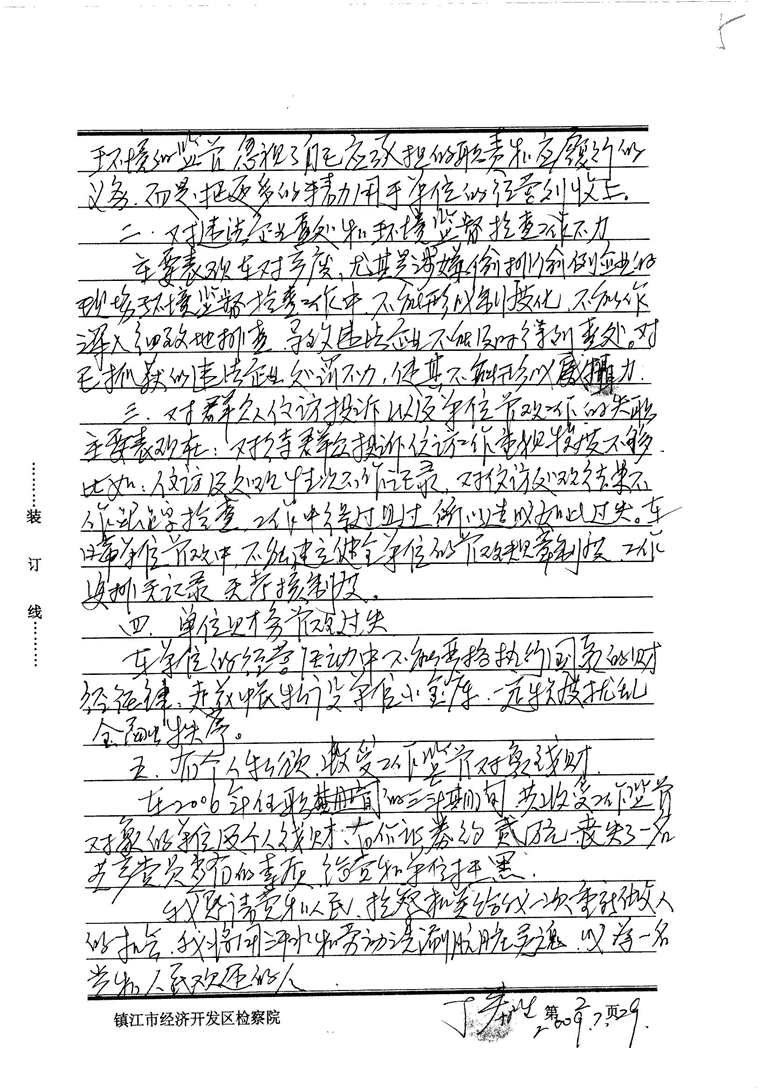 于环境的监管 忽视了自己应该承担的职责和应履行的
义务，而是把更多的精力用于单位的经营创收上。
二、对违法企业查处和环境监督检查工作不力
主要表现在对高度、尤其是涉嫌偷排偷倒企业的
现场环境监督检查工作中，不能形成制度化，不能作
深入细致地排查，导致违法企业不能及时得到查处。对
已抓获的违法企业处罚不力，使其不能形成威慑力.
三、对群众信访投诉以及单位管理工作的失职
主要表现在：对待群众投诉信访工作重视程度不够.
比如：信访及处理情况不作记录，对信访处理结果不
作跟踪检查，工作中得过且过 所以造成如此过失。在
日常单位管理中，不能建立健全单位的管理规章制度，工作
安排无记录 无考核制度。
四、单位财务管理过失
在单位的经营活动中不能严格执行国家的财
经纪律，单位小金库，扰乱
金融秩序。
五、有个人私欲，收受工作监管对象钱财.
在2006年任职期间的三年期间 共收受工作监管
对象的单位及个人钱财、有价证券约贰万元，丧失了一名
共产党员应有的素质，给党和单位抹黑.
我恳请党和人民，检察机关给我一次重新做人
的机会，我将用汗水和劳动洗刷肮脏灵魂，以为一名
党和人民欢迎的人.
镇江市经济开发区检察院
第 2 页
2009.7.29.
装 订 线
5